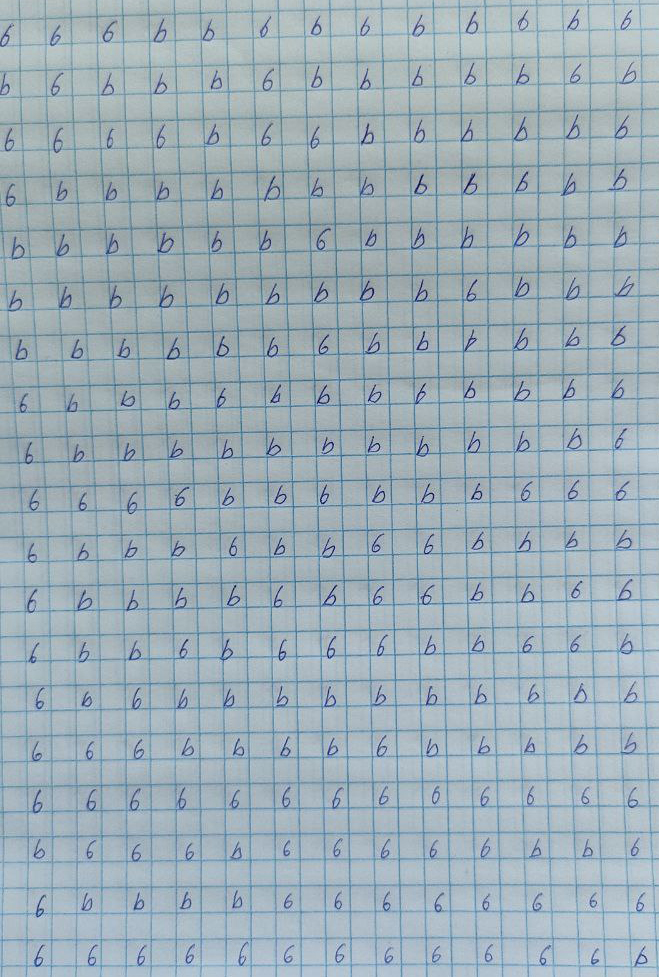 6 6 6 b b 6 b 6 b b 6 b 6
b 6 b b b 6 b b b b b 6 b
6 6 6 6 b 6 6 b b b b b b
6 b b b b b b b b b b b b
b b b b b b 6 b b b b b b
b b b b b b b b b 6 b b b
b b b b b b 6 b b b b b b
6 b b b b b b b b b b b b
6 b b b b b b b b b b b 6
6 6 6 6 b b 6 b b b 6 6 6
6 b b b 6 b b 6 6 b b b b
6 b b b b 6 b 6 6 b b 6 b
6 b b 6 b 6 6 6 b b 6 6 b
6 b 6 b b b b b b b b b b
6 6 6 b b b b 6 b b b b b
6 6 6 6 6 6 6 6 6 6 6 6 6
b 6 6 6 b 6 6 6 6 6 b b 6
6 b b b b 6 6 6 6 6 6 6 6
6 6 6 6 6 6 6 6 6 6 6 6 b